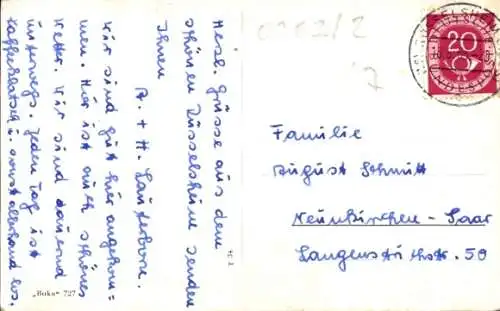 Herzl. Grüsse aus dem
schönen Rüsselsheim senden
Ihnen
A. + H. Lauterborn.
Wir sind gut hier angekom=
men. Hier ist auch schönes
Wetter. Wir sind dauernd
unterwegs. Jeden Tag ist
Kaffeeklatsch u. sonst allerhand los.
"Boka" 727
20
Familie
August Schmitt
Neunkirchen - Saar
Langenstrichstr. 50